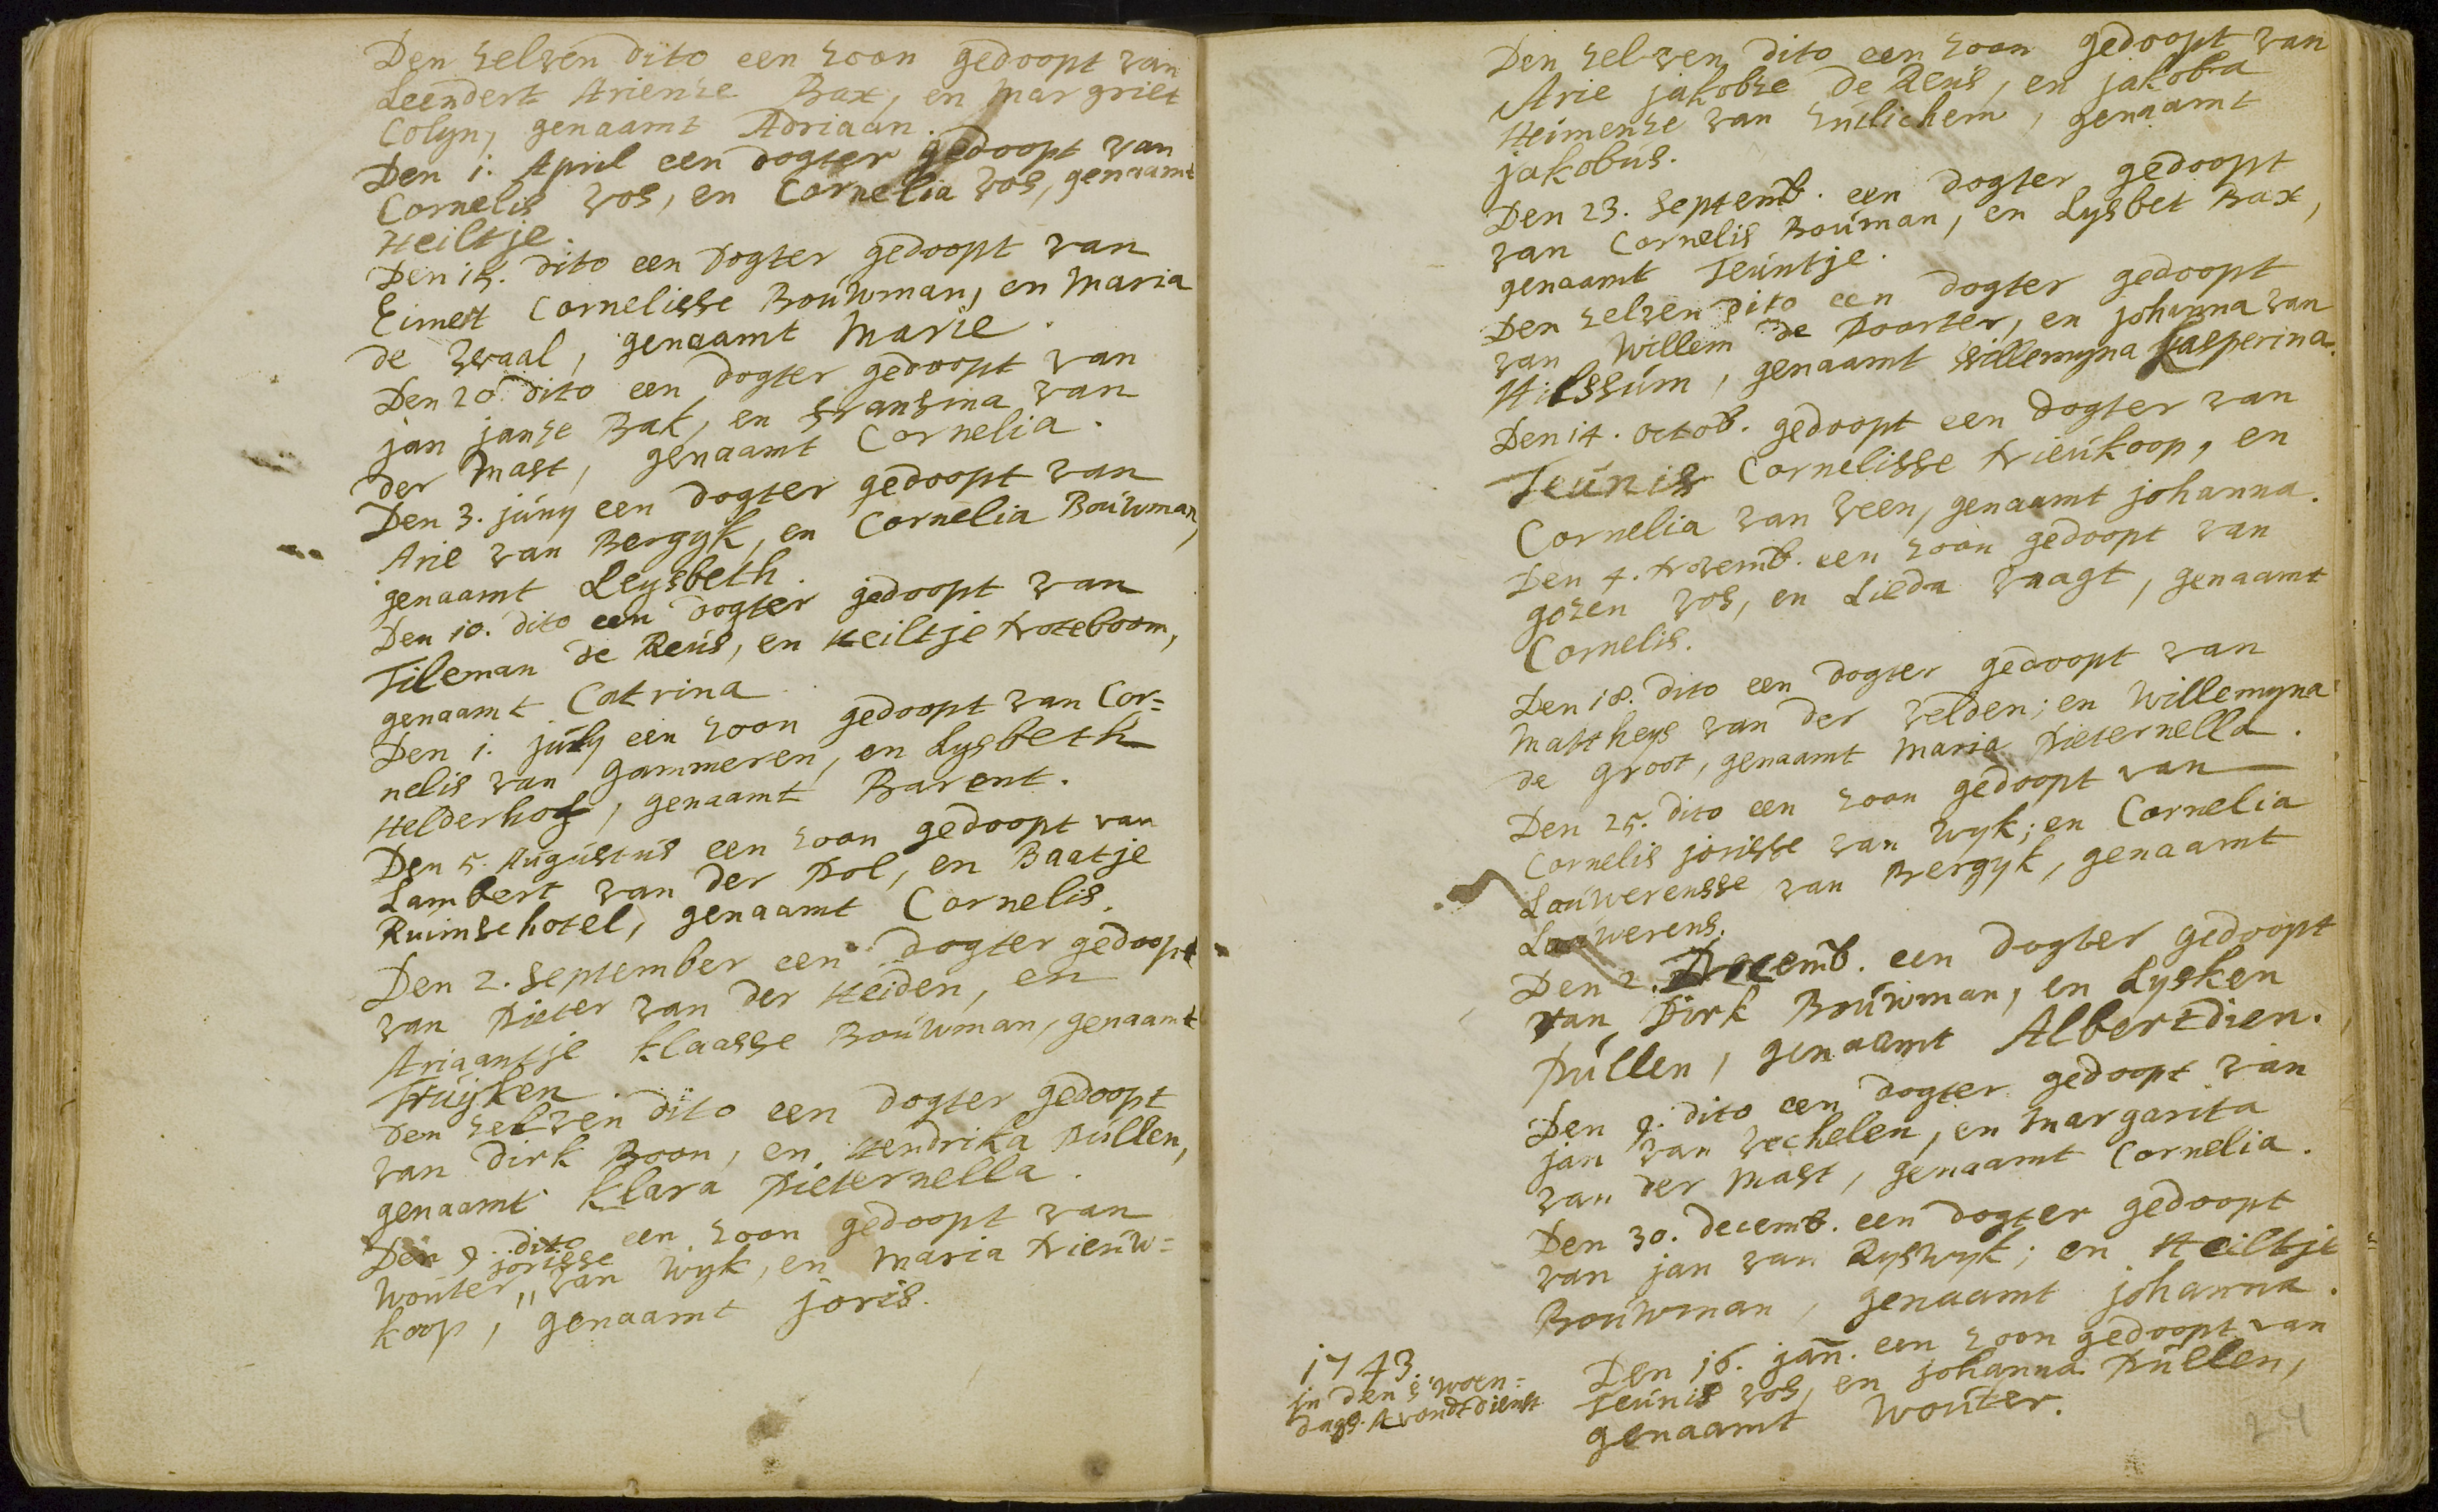 Den zelven dito een zoon gedoopt van
Leendert Arienze Bax, en Margriet
Colyn, genaamt Adriaan.
Den 1. April een dogter gedoopt van
Cornelis vos, en Cornelia vos, genaamt
Heiltje.
Den 15. dito een dogter gedoopt van
Eimert Cornelisse Bouwman, en Maria
de Waal, genaamt Marie.
Den 20 dito een dogter gedoopt van
jan janze Bak, en Fransina van
der Mast, genaamt Cornelia.
Den 3. juny een dogter gedoopt van
Arie van Bergyk, en Cornelia Bouwman,
genaamt Leysbeth.
Den 10. dito een dogter gedoopt van
Tileman de Reus, en Heiltje Noteboom,
genaamt Catrina
Den 1. july een zoon gedoopt van Cor=
nelis van Gammeren, en Lysbeth
Helderhof, genaamt Barent.
Den 5. Augustus een zoon gedoopt van
Lambert van der Pol, en Baatje
Ruimschotel, genaamt Cornelis.
Den 2. September een dogter gedoopt
van Pieter van der Heiden, en
Ariaantje Klaasse Bouwman, genaamt
Huijken
Den zelven dito een dogter gedoopt
van Dirk Boon, en Hendrika Pullen,
genaamt Klara Pieternella.
Den 9. dito een zoon gedoopt van
jorisse
Wouter " van Wyk, en Maria Nieuw=
koop, genaamt joris.
Den zelven dito een zoon gedoopt van
Arie jakobze de Reus, en jakoba
Heimenze van Zuilichem, genaamt
jakobus.
Den 23. Septemb. een dogter gedoopt
van Cornelis Bouman, en Lysbet Bax,
genaamt Teuntje.
Den zelven dito een dogter gedoopt
van Willem de Poorter, en johanna van
Hilssum, genaamt Willemyna Kasperina.
Den 14. octob. gedoopt een dogter van
Teunis Cornelisse Nieukoop, en
Cornelia van Veen, genaamt johanna.
Den 4. Novemb. een zoon gedoopt van
gozen vos, en Lieda Vaagt, genaamt
Cornelis.
Den 18. dito een dogter gedoopt van
Mattheys van der Velden; en Willemyna
de Groot, genaamt Maria Pieternella.
Den 25. dito een zoon gedoopt van
Cornelis jorisse van Wyk; en Cornelia
Lauwerensse van Bergyk, genaamt
Lauwerens.
Den 2. Decemb. een dogter gedoopt
van Dirk Bouwman, en Lysken
Pullen, genaamt Albertdien.
Den 9. dito een dogter gedoopt van
jan van Vechelen, en Margarita
van der Mast, genaamt Cornelia.
Den 30. decemb. een dogter gedoopt
van jan van Ryswyk; en Heiltje
Bouwman, genaamt johanna.
1743.
in den s'woen=
dags. Avondtdienst
Den 16. jann. een zoon gedoopt van
Teunis vos, en johanna Pullen,
genaamt Wouter.
24